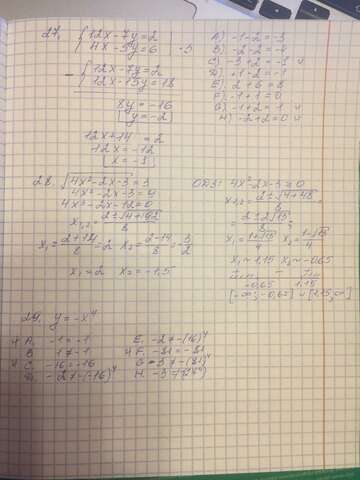 27.
{12x-7y=2
{4x-5y=6 ·3
- {12x-7y=2
{12x-15y=18
8y=-16
[y=-2]
12x+14=2
12x=-12
[x=-1]
A) -1-2=-3
B) -2-2=-4
C) -3+2=-1 v
D) +1-2=-1
E) 2+6=8
F) -1+1=0
G) -1+2=1 v
H) -2+2=0 v
28. √4x²-2x-3=3
4x²-2x-3=9
4x²-2x-12=0
x₁,₂=2±√4+192/8
x₁=2+14/8=2 x₂=2-14/8=-3/2
x₁=2 x₂=-1,5
ОДЗ: 4x²-2x-3≥0
x₁,₂=2±√4+48/8=
=2±2√13/8
x₁=1+√13/4 x₂=1-√13/4
x₁≈1,15 x₂≈-0,65
-0,65 1,15
29. y=-x⁴
A. -1=-1
B. 1≠-1
C. -16=-16
D. -2≠-(-16)⁴
E. -2≠-(16)⁴
F. -81=-81
G. 3≠-(81)⁴